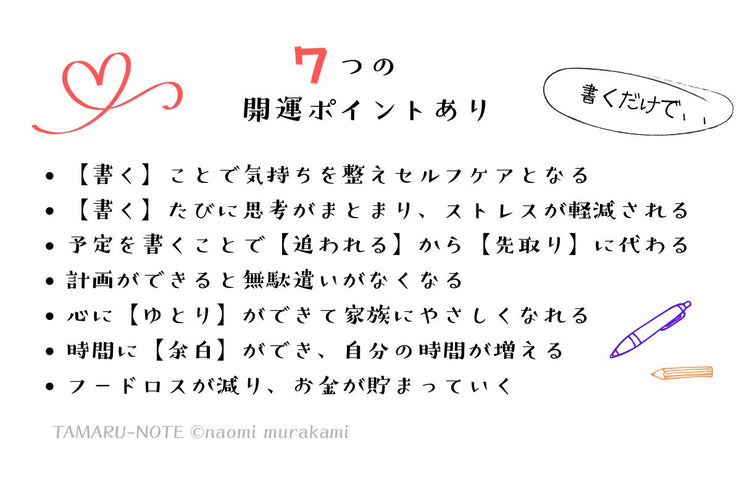 7つの
開運ポイントあり
書くだけで、、
• 【書く】ことで気持ちを整えセルフケアとなる
• 【書く】たびに思考がまとまり、ストレスが軽減される
• 予定を書くことで【追われる】から【先取り】に代わる
• 計画ができると無駄遣いがなくなる
• 心に【ゆとり】ができて家族にやさしくなれる
• 時間に【余白】ができ、自分の時間が増える
• フードロスが減り、お金が貯まっていく
TAMARU-NOTE ©naomi murakami